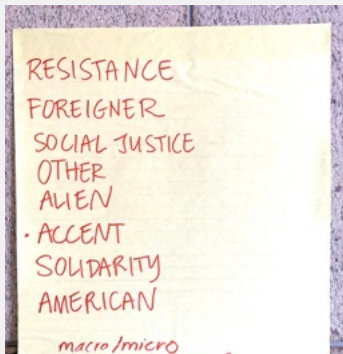 RESISTANCE
FOREIGNER
SOCIAL JUSTICE
OTHER
ALIEN
· ACCENT
SOLIDARITY
AMERICAN
macro/micro